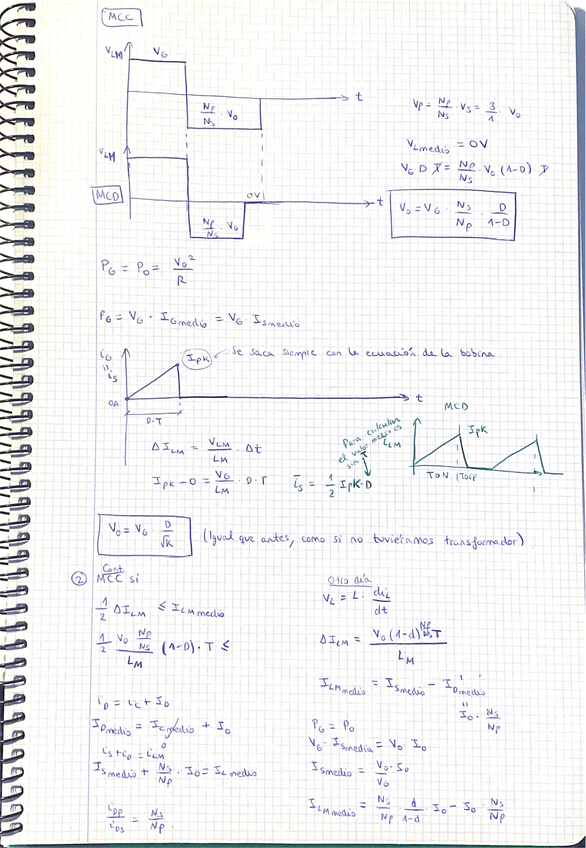 MCC
V_LM
V_G
t
Np/Ns · Vo
V_LM
MCD
0V
t
Np/Ns · Vo
Vp = Np/Ns · Vs = 3/1 · Vo
V_Lmedio = 0V
V_G D T = Np/Ns · Vo (1-D) T
Vo = V_G · Ns/Np · D/(1-D)
P_G = Po = Vo²/R
P_G = V_G · I_Gmedio = V_G · I_Smedio
i_G
"
i_S
I_pk
Se saca siempre con la ecuación de la bobina
0A
t
D·T
ΔI_LM = V_LM/L_M · Δt
I_pk - 0 = V_G/L_M · D·T
Para calcular
el valor medio es
sin T
i_S = 1/2 I_pk·D
MCD
i_LM
I_pk
TON
TOFF
Vo = V_G · D/√k
(Igual que antes, como si no tuvieramos transformador)
② Cont
MCC si
1/2 ΔI_LM ≤ I_LMmedio
1/2 Vo Np/Ns / L_M (1-D) · T ≤
i_D = i_C + I_O
I_Dmedio = I_Cmedio + I_O
0
i_S + i_D = i_LM
I_Smedio + Ns/Np · I_O = I_Lmedio
i_DP/i_DS = Ns/Np
Otro día
V_L = L · di_L/dt
ΔI_LM = Vo (1-d) Np/Ns T / L_M
I_LMmedio = I_Smedio - I_Dmedio
"
I_O · Ns/Np
P_G = Po
V_G · I_Smedia = Vo · I_O
I_Smedio = Vo · I_O / V_G
I_LMmedio = Ns/Np · d/(1-d) · I_O - I_O · Ns/Np